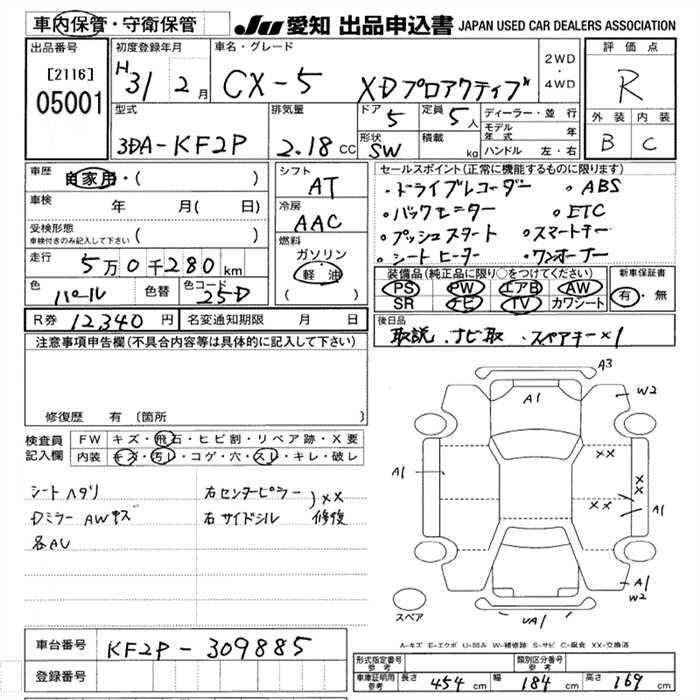 車内保管・守衛保管
JU 愛知 出品申込書 JAPAN USED CAR DEALERS ASSOCIATION
出品番号
[2116]
05001
初度登録年月
H31 2月
車名・グレード
CX-5 XDプロアクティブ
2WD
・
4WD
評価点
R
型式
3DA-KF2P
排気量
2.18 CC
ドア
5
定員
5人
形状
SW
積載
kg
ディーラー・並行
モデル年式 年
ハンドル 左・右
外装 内装
B C
車歴
自家用・( )
車検
年 月( 日)
受検形態
車検付きのみ記入して下さい ( )
走行
5万0千280km
色
パール
色替
色コード
25D
シフト
AT
冷房
AAC
燃料
ガソリン
軽油
( )
セールスポイント(正常に機能するものに限ります)
・ドライブレコーダー ・ABS
・バックモニター ・ETC
・プッシュスタート ・スマートキー
・シートヒーター ・ワンオーナー
装備品(純正品に限り○をつけてください)
PS PW エアB AW
SR ナビ TV カワシート
新車保証書
有・無
R券 12,340円
名変通知期限 月 日
後日品
取説、ナビ取、スペアキー×1
注意事項申告欄(不具合内容等は具体的に記入して下さい)
修復歴 有 〔箇所 〕
検査員記入欄
FW キズ・飛石・ヒビ割・リペア跡・X要
内装 キズ・汚レ・コゲ・穴・スレ・キレ・破レ
シートヘタリ
Dミラー AWキズ
各AU
右センターピラー
右サイドシル
)××
修復
A3
A1
W2
A1
××
××
××
A1
A1
W2
UA1
スペア
A-キズ E-エクボ U-凹み W-補修跡 S-サビ C-腐食 XX-交換済
車台番号 KF2P-309885
登録番号
形式指定番号 参考
類別区分番号 参考
車庫証明用 参考
長さ 454 cm
幅 184 cm
高さ 169 cm